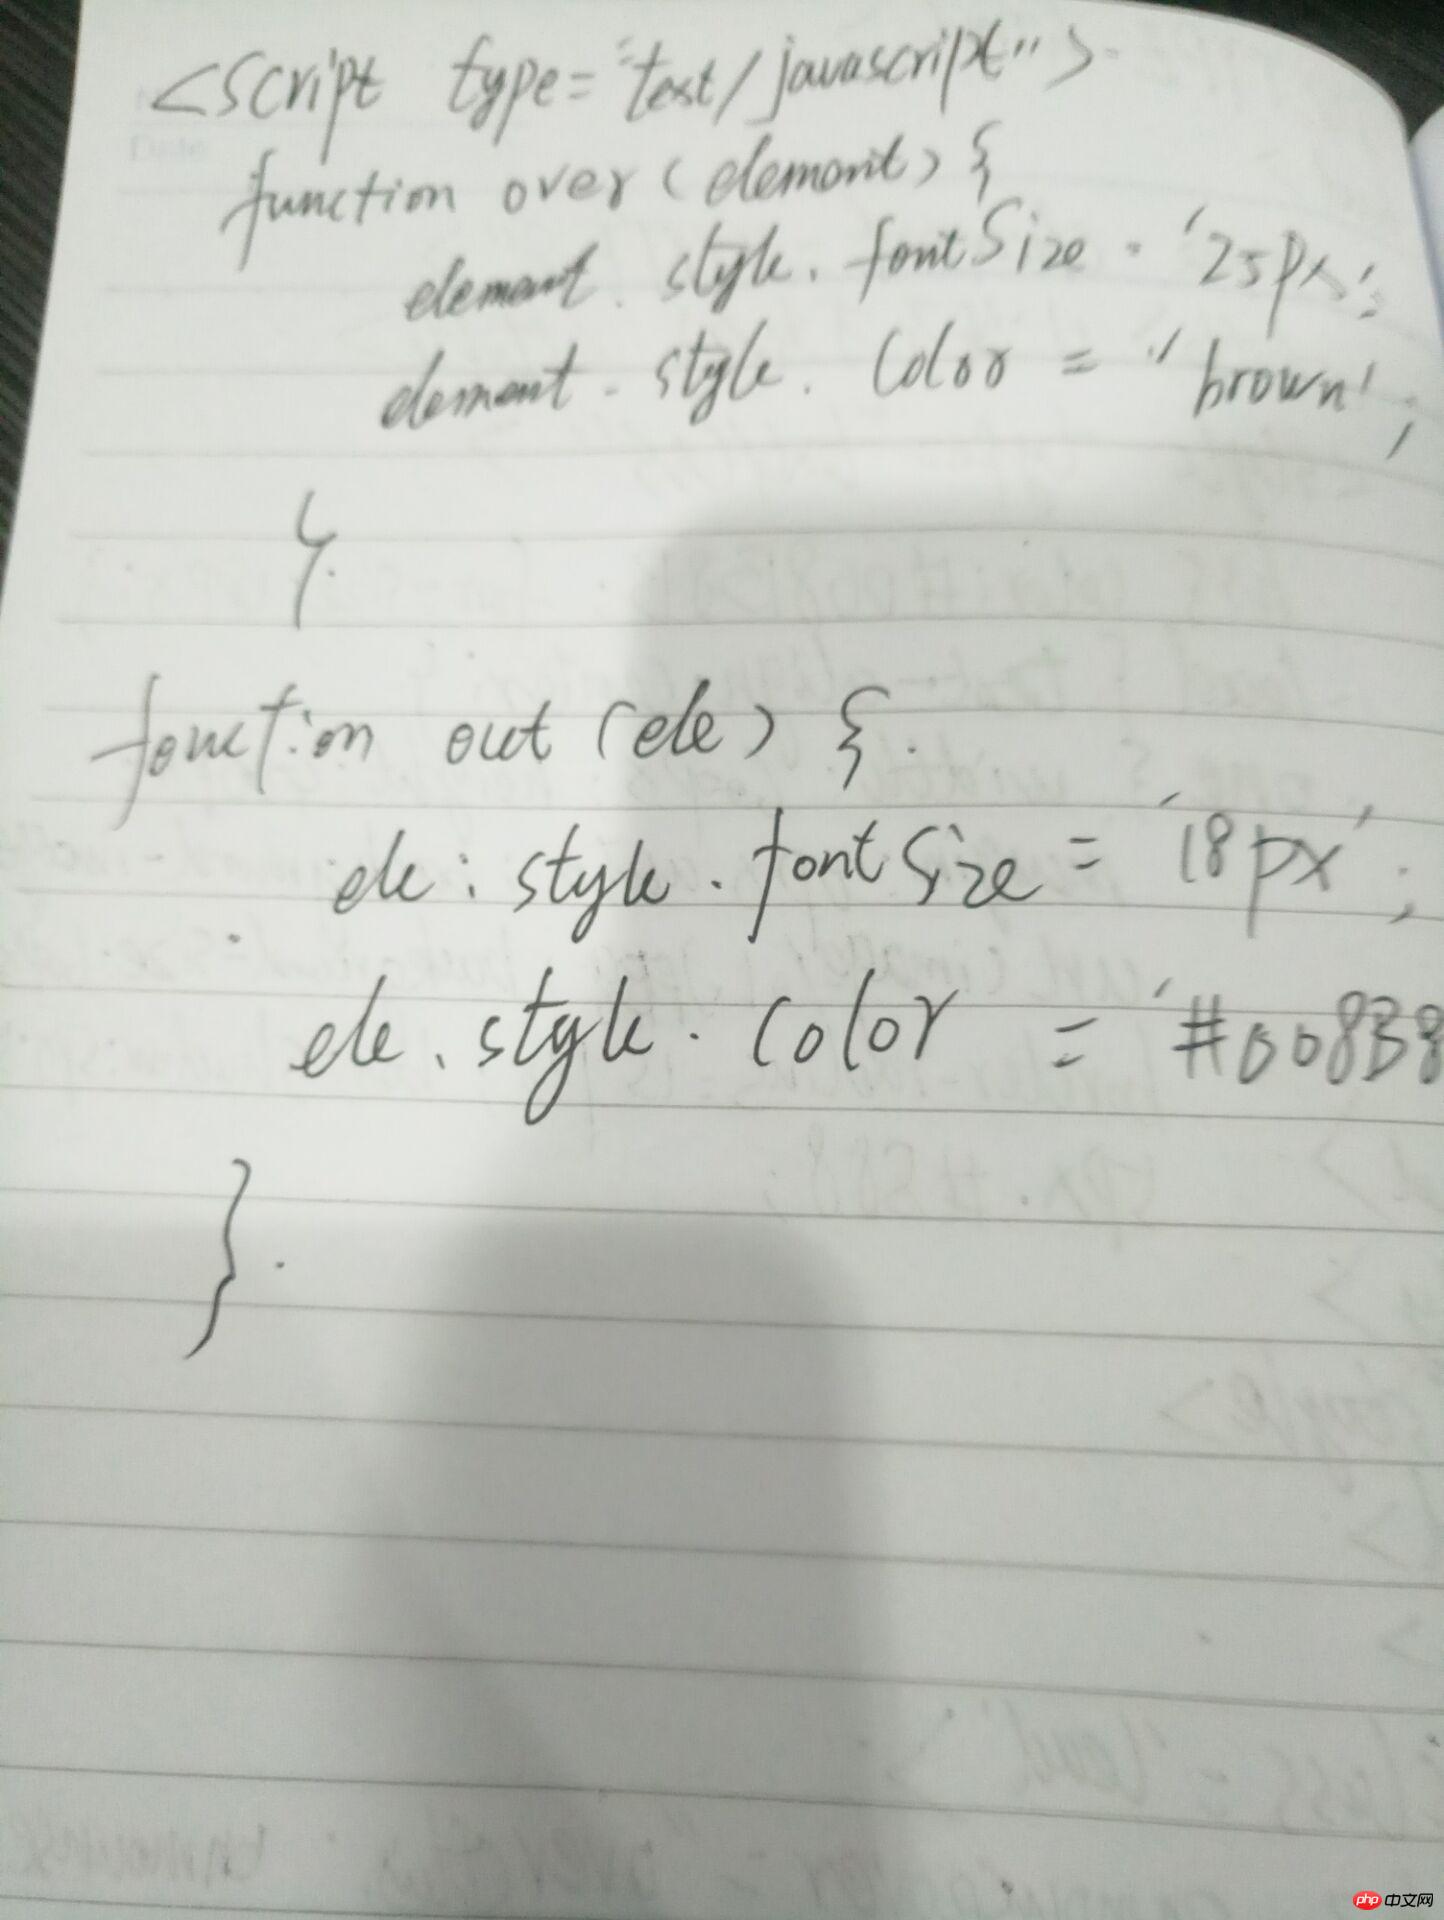 <script type="text/javascript">
function over(element) {
element.style.fontSize = '25px';
element.style.color = 'brown';
}
function out(ele) {
ele.style.fontSize = '18px';
ele.style.color = '#008B8
}
php 中文网